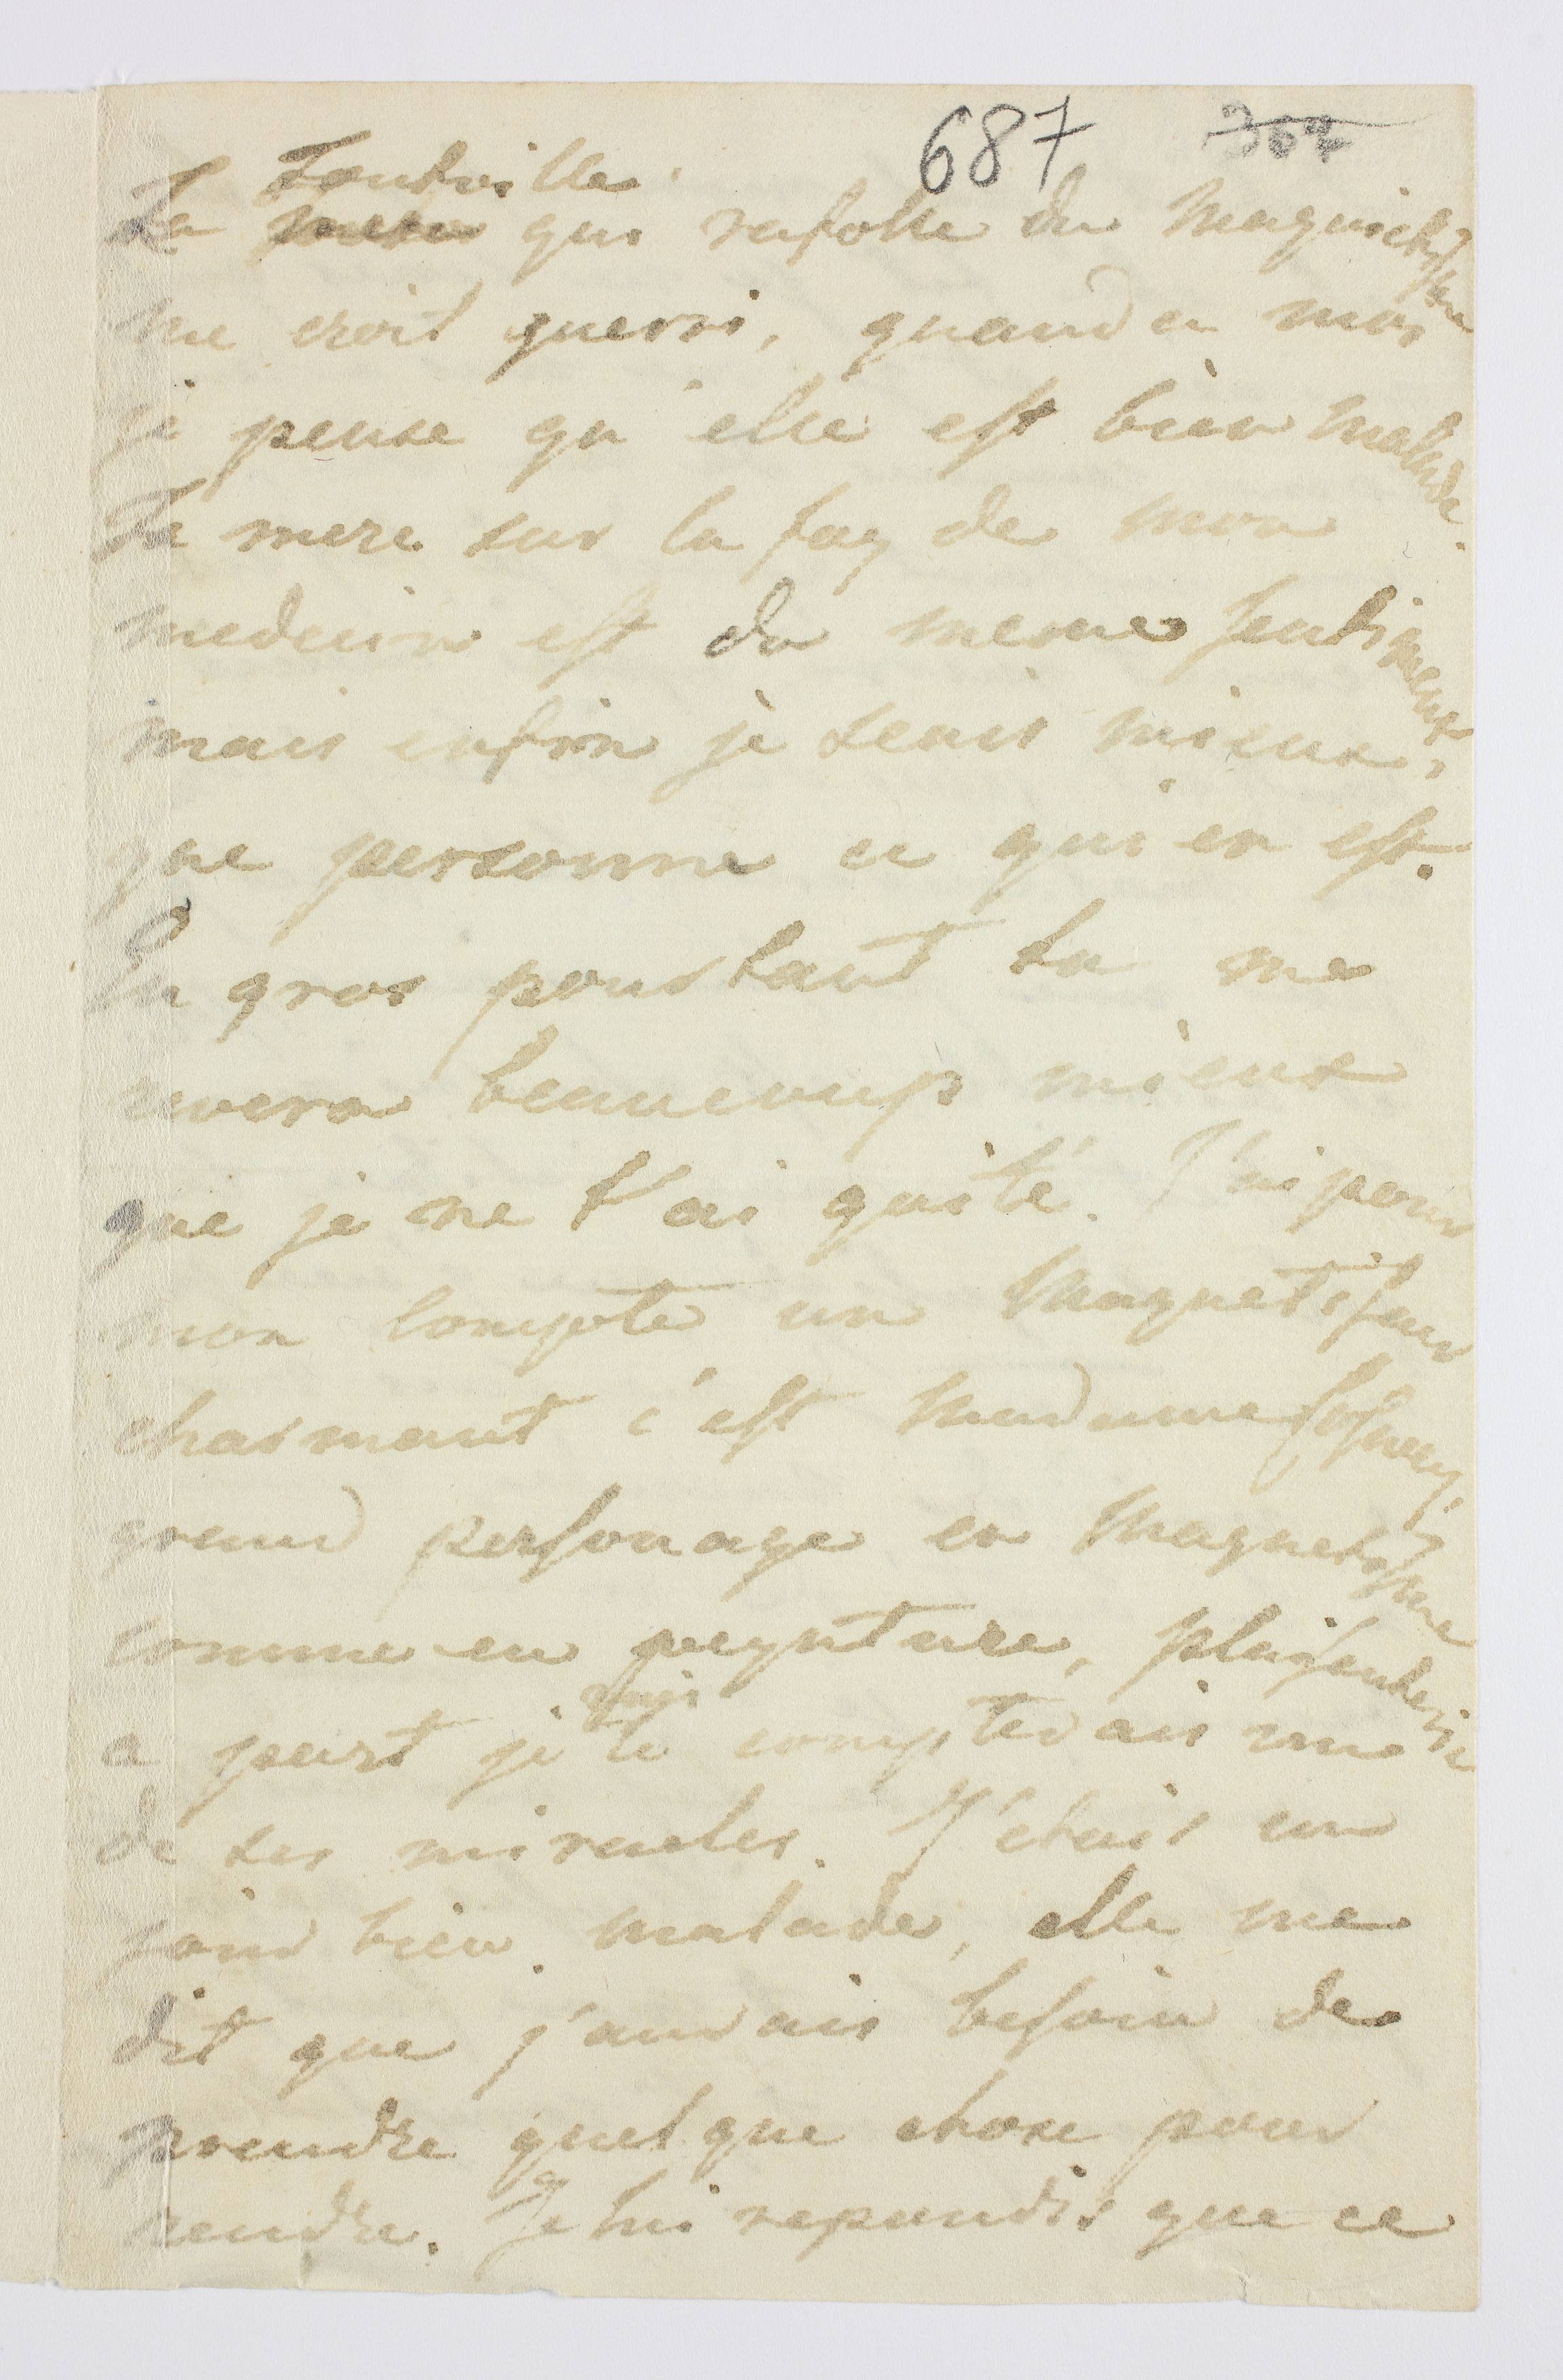 687 364
Tontville
La mere qui rafolle du Magnietisme
me croit guerri, quand a moi
je pense qu'elle est bien malade.
Ta mere sur la foy de mon
medecin est du meme sentiment,
mais enfin je scais mieux,
que personne ce qui en est.
En gros pourtant tu me
revera beaucoup mieux
que je ne t'ai quité. J'ai pour
mon compte un Magnetiseur
charmant c'est Madame
grand personage en Magnetisme
comme en peynture, plaisanterie
a part je vais te compter ais une
de ses miracles. J'étais un
jour bien malade, elle me
dit que j'aurais besoin de
prendre quelque chose pour
rendre. Je lui repondis que ce